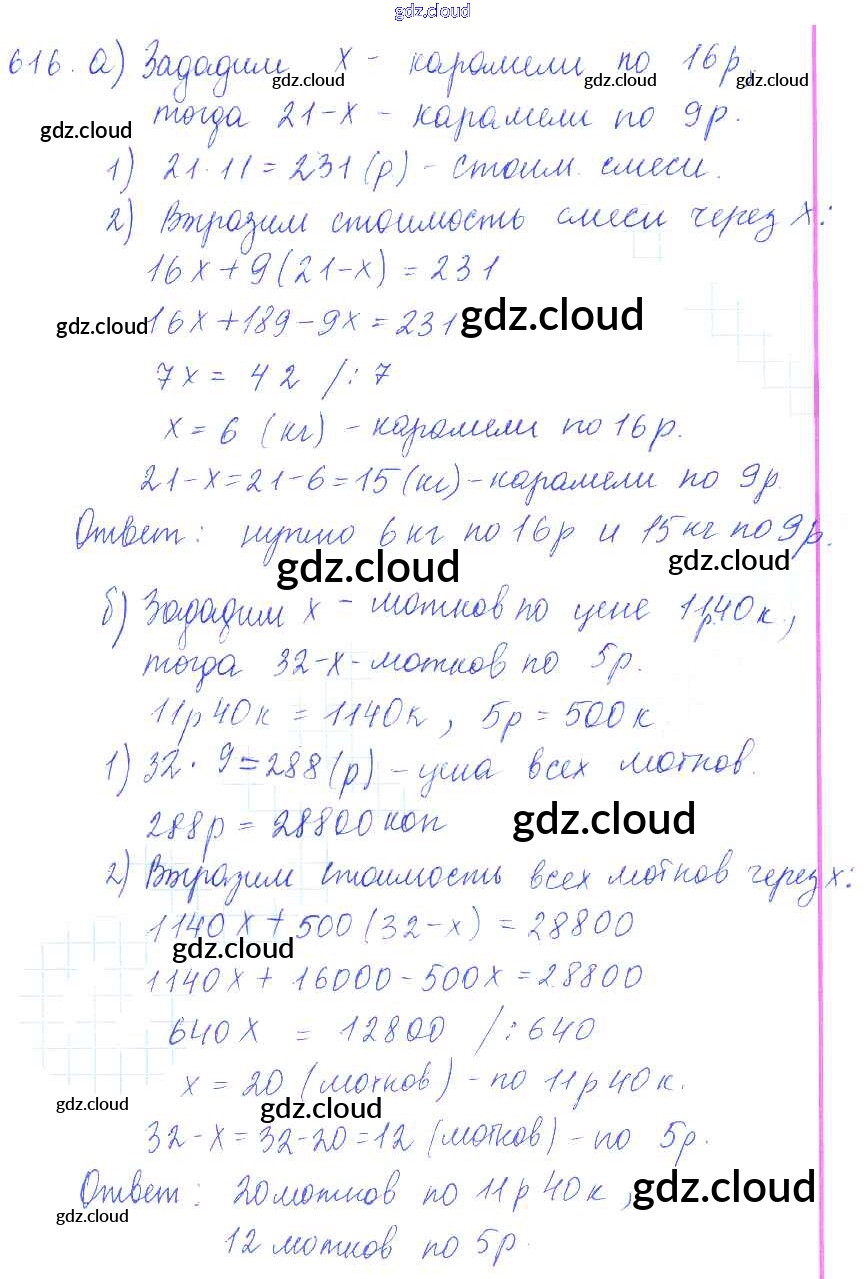 gdz.cloud
616. а) Зададим х - карамели по 16р,
gdz.cloud gdz.cloud gdz.cloud
тогда 21-х - карамели по 9р.
gdz.cloud
1) 21·11=231(р) - стоим. смеси.
2) Выразим стоимость смеси через х:
16х+9(21-х)=231
16х+189-9х=231
gdz.cloud gdz.cloud
7х = 42 /:7
х=6 (кг) - карамели по 16р.
21-х=21-6=15(кг)-карамели по 9р.
Ответ: нужно 6кг по 16р и 15кг по 9р.
gdz.cloud gdz.cloud
б) Зададим х - мотков по цене 11р40к,
тогда 32-х-мотков по 5р.
11р40к=1140к, 5р=500к
1) 32·9=288(р) - цена всех мотков.
288р=28800коп
gdz.cloud
2) Выразим стоимость всех мотков через х:
1140х+500(32-х)=28800
gdz.cloud
1140х+16000-500х=28800
640х = 12800 /:640
х=20 (мотков) - по 11р40к.
gdz.cloud gdz.cloud
32-х=32-20=12 (мотков) - по 5р.
Ответ: 20мотков по 11р40к,
gdz.cloud
gdz.cloud
12 мотков по 5р.